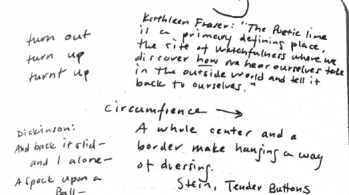 turn out
turn up
turnt up
Kathleen Fraser: "The Poetic line
is a primary defining place,
the site of watchfulness where we
discover how we hear ourselves take
in the outside world and tell it
back to ourselves."
Circumfrence →
Dickinson:
And back it slid—
and I alone—
A speck upon a
Ball—
A whole center and a
border make hanging a way
of dressing.
Stein, Tender Buttons